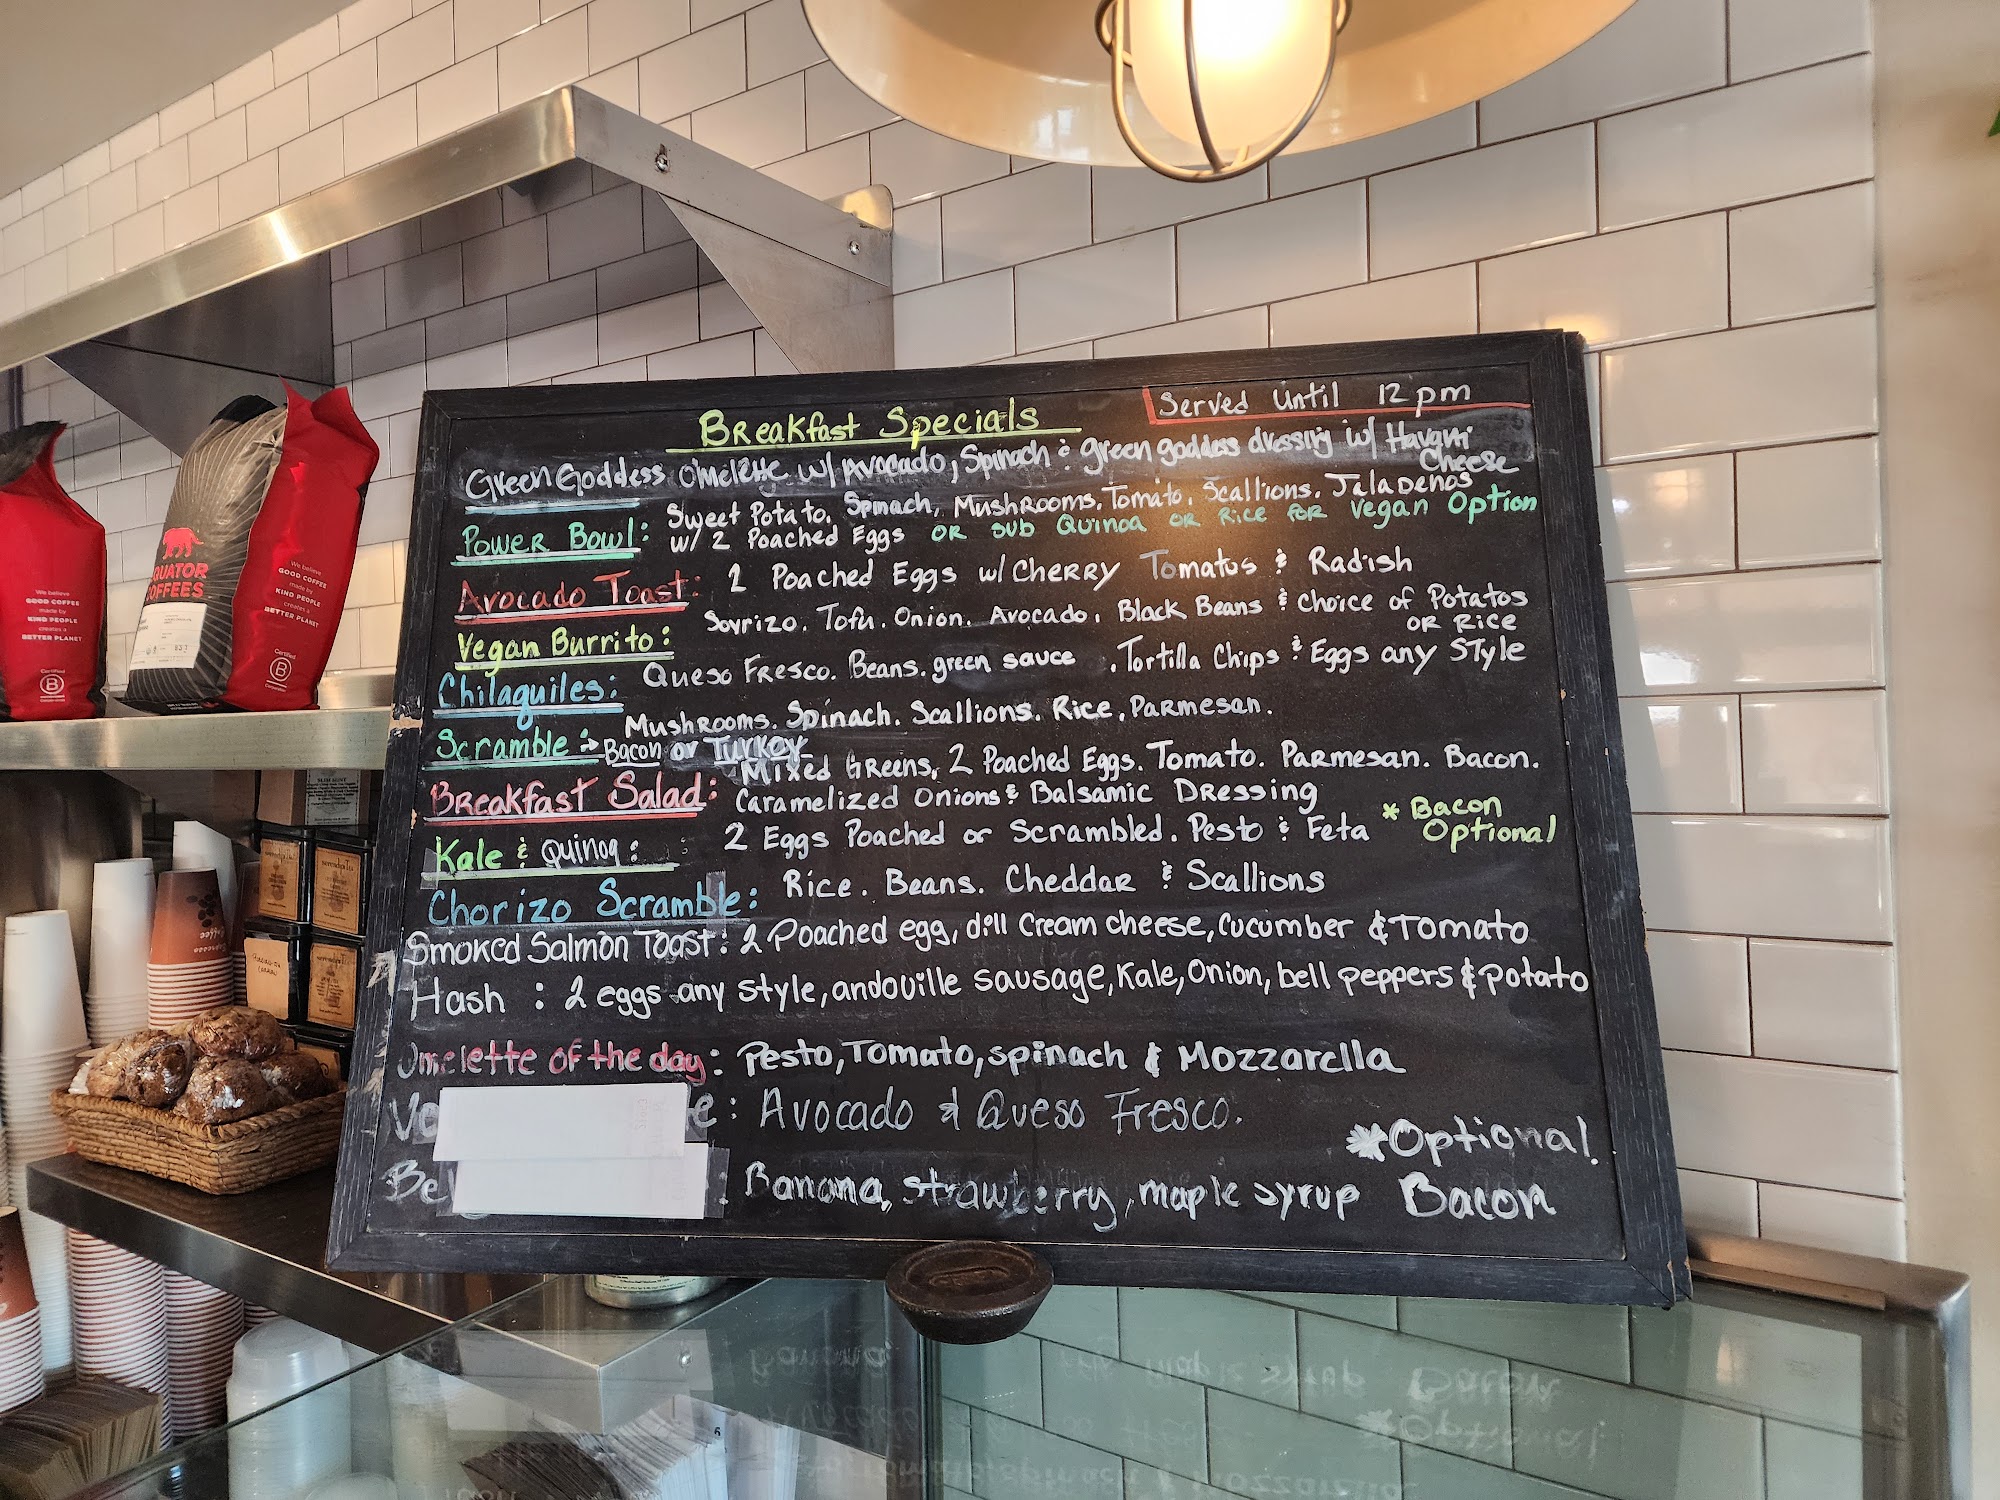 Breakfast Specials
Served Until 12pm
Green Goddess Omelette w/ Avocado, Spinach & green goddess dressing w/ Havarti
Cheese
Power Bowl: Sweet Potato, Spinach, Mushrooms. Tomato. Scallions. Jalapenos
w/ 2 Poached Eggs or sub Quinoa or Rice for Vegan Option
Avocado Toast: 2 Poached Eggs w/ Cherry Tomatus & Radish
Vegan Burrito: Soyrizo. Tofu. Onion. Avocado. Black Beans & Choice of Potatos
or Rice
Chilaquiles: Queso Fresco. Beans. green sauce . Tortilla Chips & Eggs any Style
Scramble: Mushrooms. Spinach. Scallions. Rice. Parmesan.
Bacon or Turkey
Breakfast Salad: Mixed Greens, 2 Poached Eggs. Tomato. Parmesan. Bacon.
Caramelized Onions & Balsamic Dressing
Kale & Quinoa: 2 Eggs Poached or Scrambled. Pesto & Feta * Bacon
Optional
Chorizo Scramble: Rice. Beans. Cheddar & Scallions
Smoked Salmon Toast: 2 Poached egg, dill Cream cheese, Cucumber & Tomato
Hash : 2 eggs any style, andouille sausage, Kale, Onion, bell peppers & potato
Omelette of the day: Pesto, Tomato, spinach & Mozzarella
: Avocado & Queso Fresco.
Banana, strawberry, maple syrup
*Optional
Bacon
EQUATOR
COFFEES
We believe
GOOD COFFEE
made by
KIND PEOPLE
creates a
BETTER PLANET
Certified
B
Corporation
We believe
GOOD COFFEE
made by
KIND PEOPLE
creates a
BETTER PLANET
Certified
B
Corporation
Espresso
Coffee